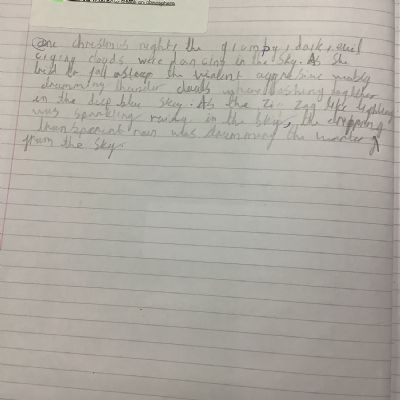 on atmosphere
One christmas night, the grumpy, dark, evil
clouds were dancing in the sky. As she
tried to fall asleep the violent aggressive
drumming thunder clouds where bashing together
in the deep blue sky. As the Zig Zag like lightning
was sparkling in the sky, the dropping
transparent rain was drumming the
from the sky.